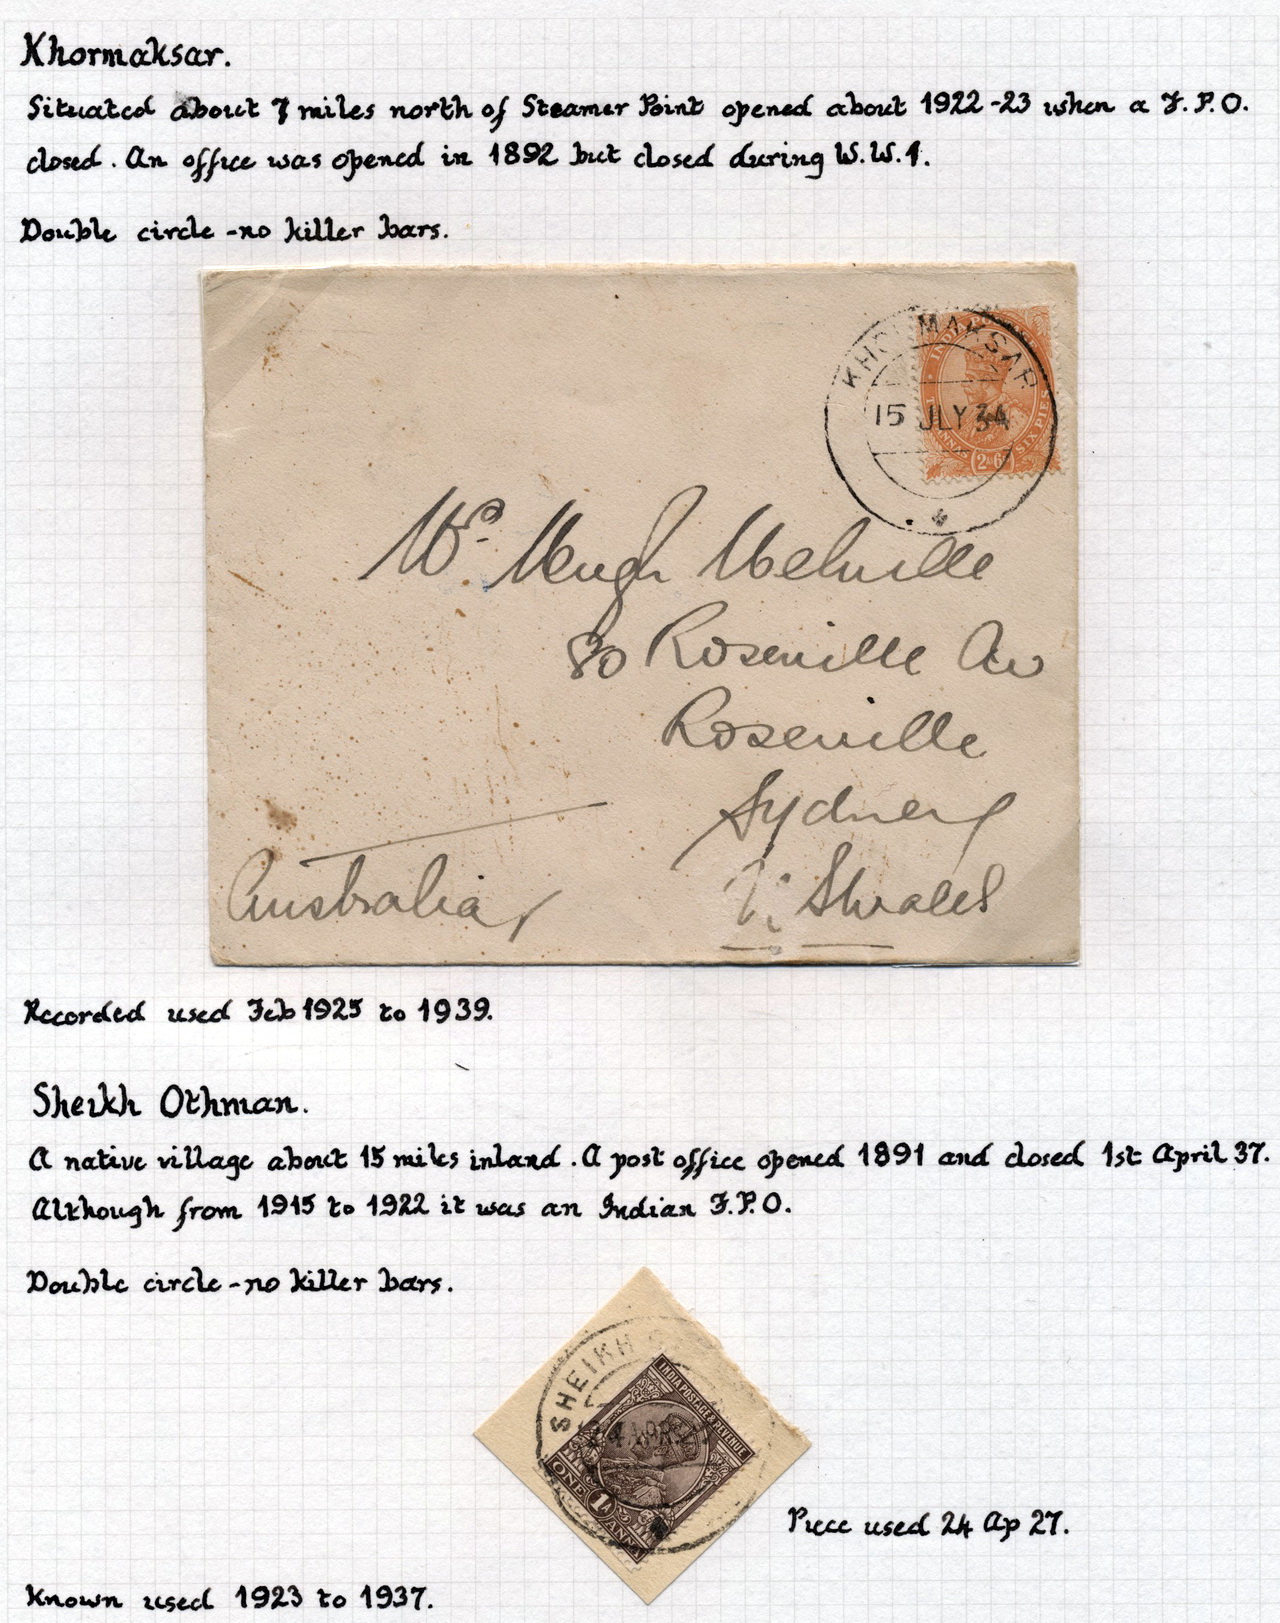 Khormaksar.
Situated about 7 miles north of Steamer Point opened about 1922-23 when a F.P.O.
closed. An office was opened in 1892 but closed during W.W.1.
Double circle - no killer bars.
KHORMAKSAR
15 JLY 34
INDIA
ANNAS 2As6p SIX PIES
Hugh Melville
80 Roseville Av
Roseville
Sydney
N. S Wales
Australia
Recorded used Feb 1925 to 1939.
Sheikh Othman.
A native village about 15 miles inland. A post office opened 1891 and closed 1st April 37.
Although from 1915 to 1922 it was an Indian F.P.O.
Double circle - no killer bars.
SHEIKH
INDIA POSTAGE & REVENUE
24 APR.
ONE 1A ANNA
Piece used 24 Ap 27.
Known used 1923 to 1937.